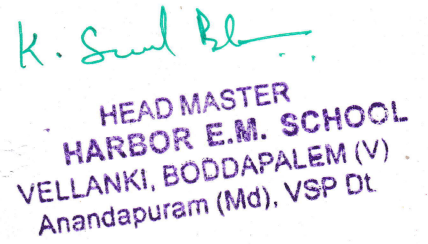 K.
HEAD MASTER
HARBOR E.M. SCHOOL
VELLANKI, BODDAPALEM (V)
Anandapuram (Md), VSP Dt.